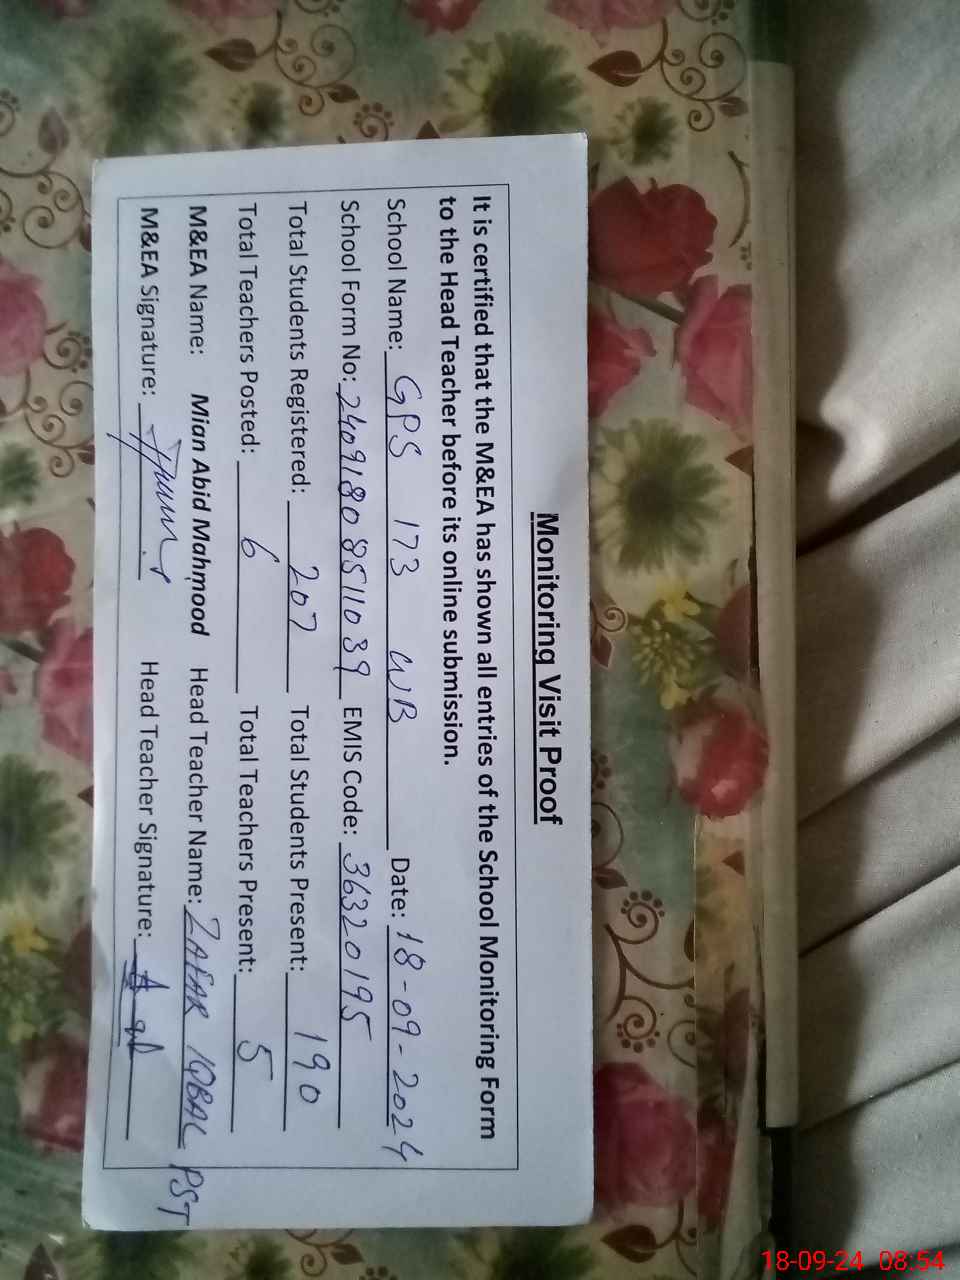 Monitoring Visit Proof
It is certified that the M&EA has shown all entries of the School Monitoring Form
to the Head Teacher before its online submission.
School Name: GPS 173 WB Date: 18-09-2024
School Form No: 24091808511039 EMIS Code: 36320195
Total Students Registered: 207 Total Students Present: 190
Total Teachers Posted: 6 Total Teachers Present: 5
M&EA Name: Mian Abid Mahmood Head Teacher Name: ZAFAR IQBAL PST
M&EA Signature: Head Teacher Signature:
18-09-24 08:54